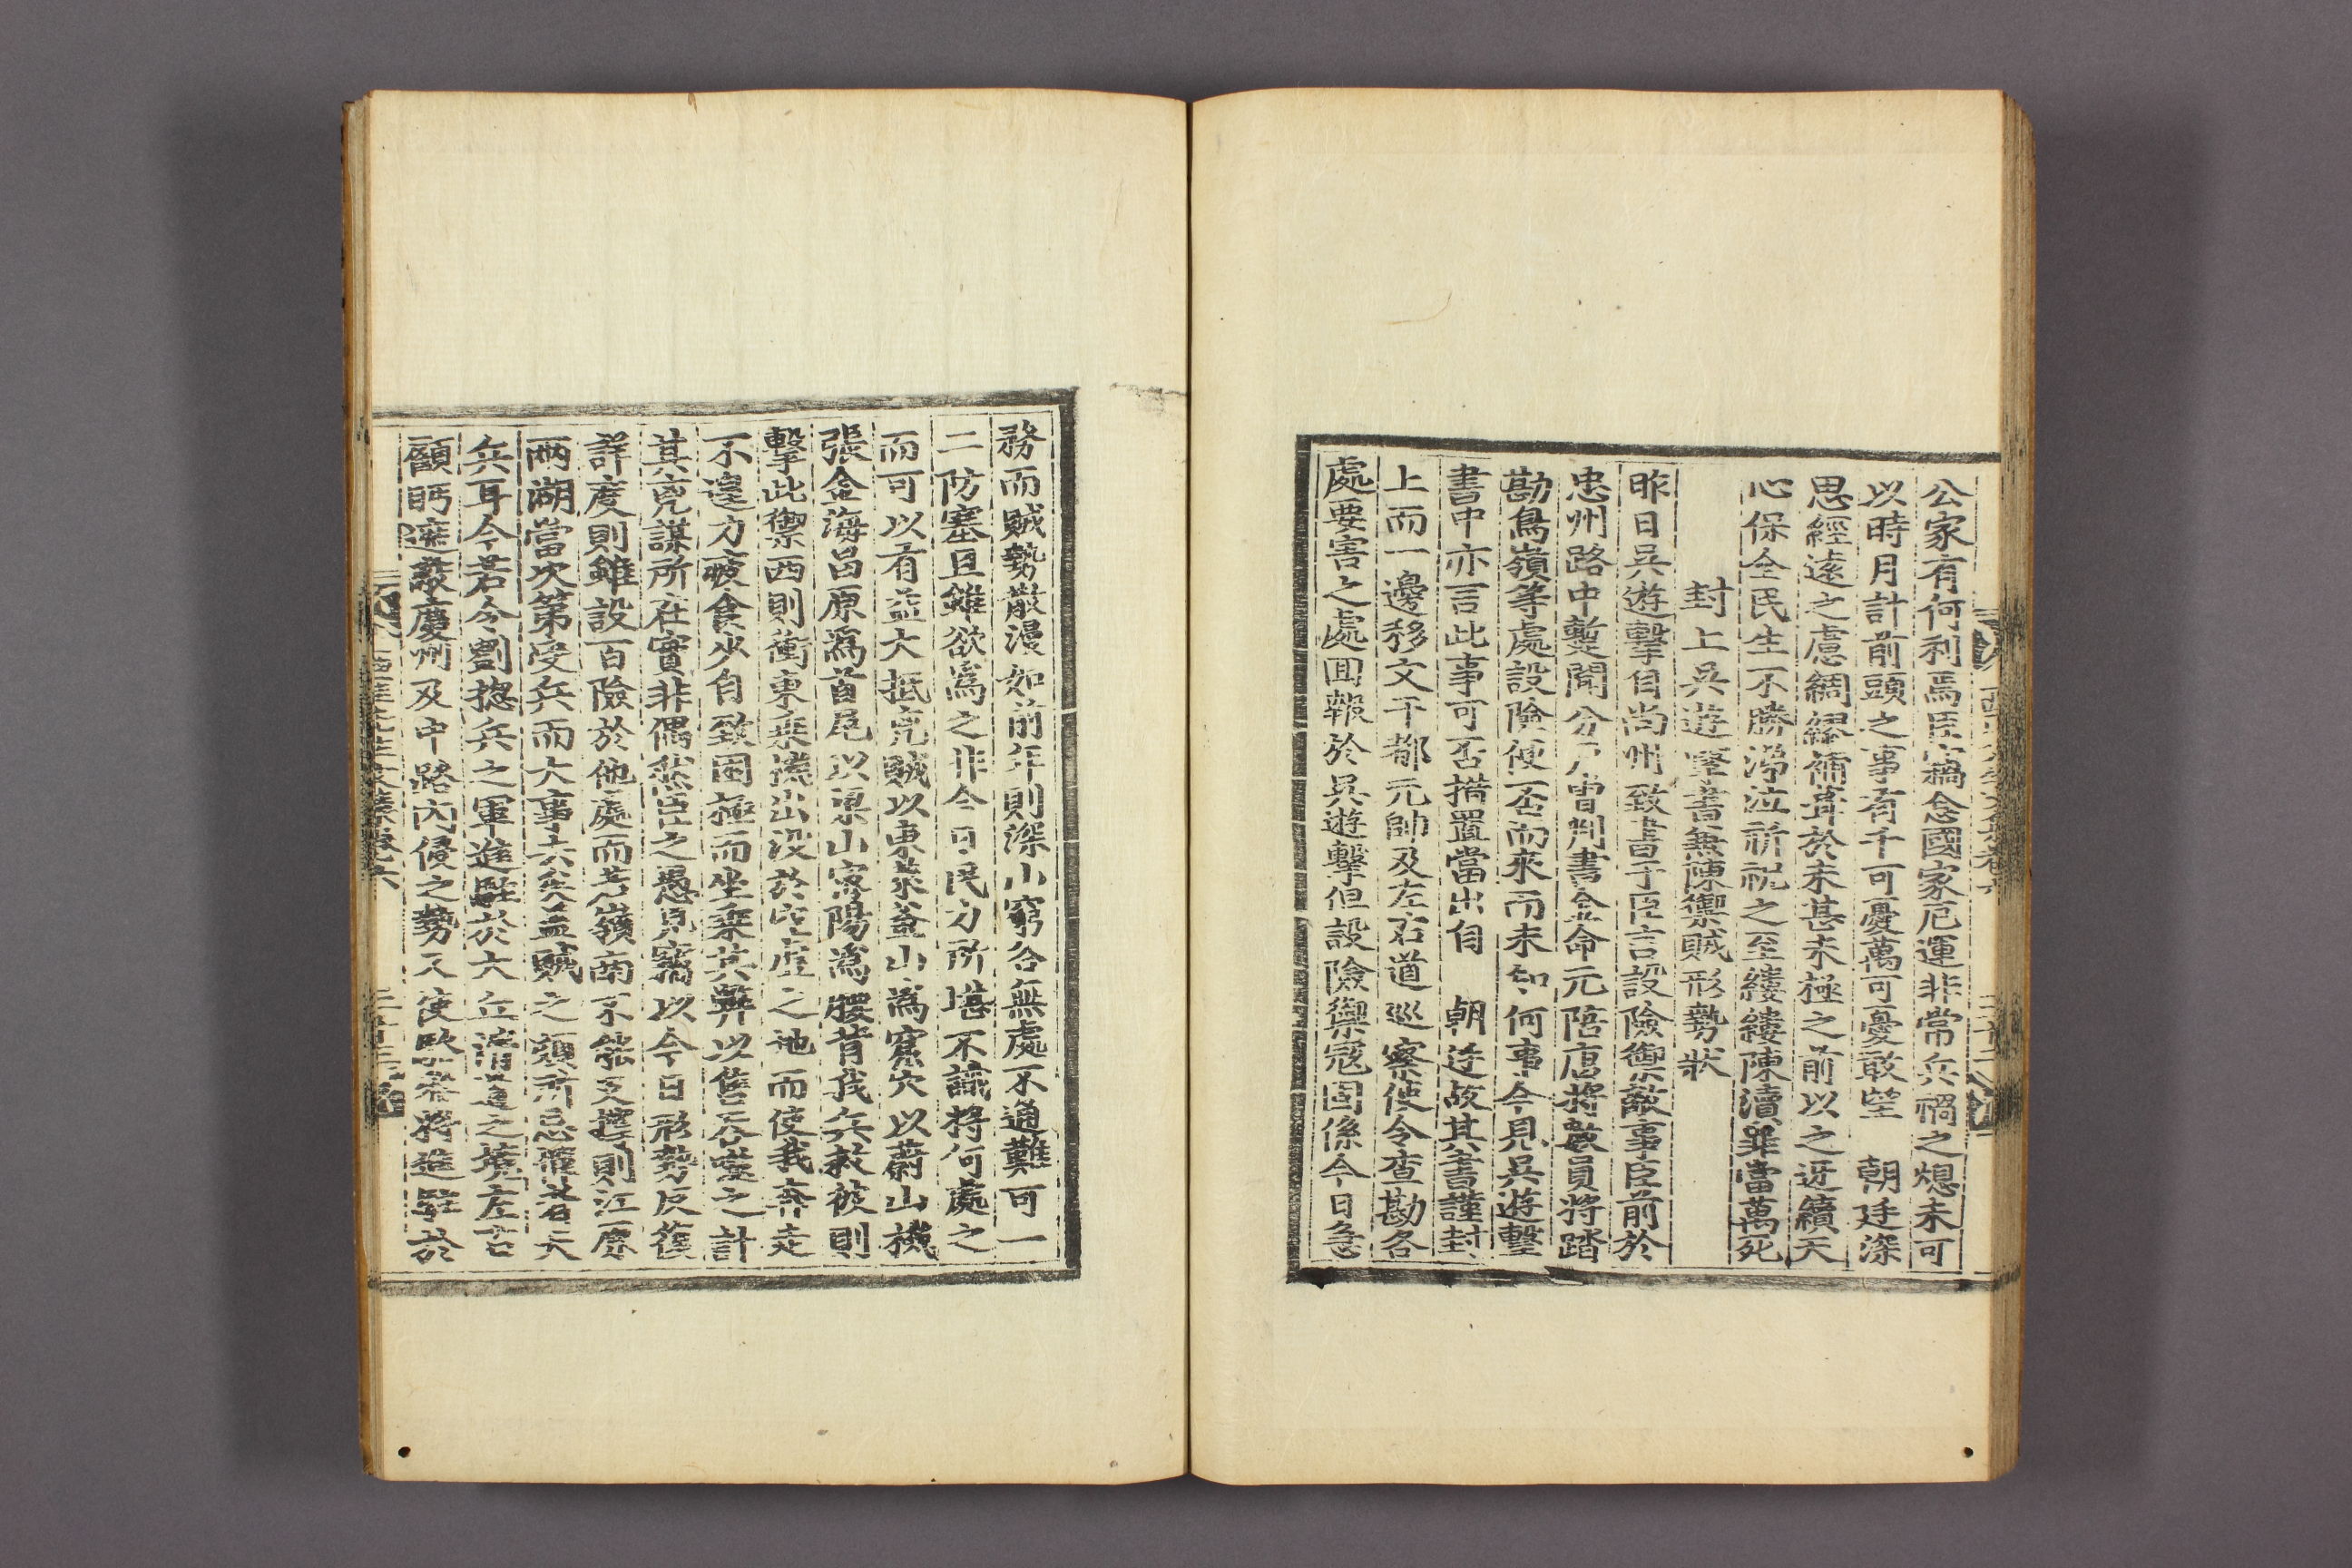 公家有何利焉臣竊念國家厄運非常兵禍之熄未可
以時月計前頭之事有千可憂萬可憂敢望 朝廷深
思經遠之慮綢繆補葺於未甚未極之前以之迓續天
心保全民生不勝涕泣祈祝之至縷縷陳瀆罪當萬死
封上吳遊擊書兼陳禦賊形勢狀
昨日吳遊擊自尚州致書于臣言設險禦敵事臣前於
忠州路中蹔聞分戶曹判書金命元陪唐將數員將踏
勘鳥嶺等處設險便否而來而未知何事今見吳遊擊
書中亦言此事可否措置當出自 朝廷故其書謹封
上而一邊移文于都元帥及左右道巡察使令查勘各
處要害之處回報於吳遊擊但設險禦寇固係今日急
務而賊勢散漫如前年則深山窮谷無處不通難可一
二防塞且雖欲爲之非今日民力所堪不識將何處之
而可以有益大抵兇賊以東萊釜山爲窟穴以蔚山機
張金海昌原爲首尾以梁山密陽爲腰脊我兵救彼則
擊此禦西則衝東乘機出沒於空虛之地而使我奔走
不遑力疲食少自致困極而坐乘其弊以售吞噬之計
其兇謀所在實非偶然臣之愚見竊以今日形勢反復
詳度則雖設百險於他處而若嶺南不能支撑則江原
兩湖當次第受兵而大事去矣盖賊之頭所忌憚者天
兵耳今若令劉摠兵之軍進駐於大丘淸道之境左右
顧眄遮截慶州及中路內侵之勢又使駱參將進駐於